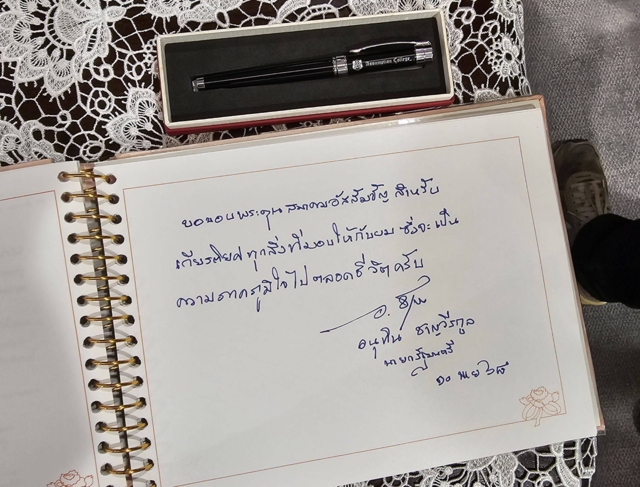 Assumption College
ขอขอบพระคุณ สมาคมอัสสัมชัญ สำหรับ
เกียรติยศ ทุกสิ่งที่มอบให้กับผม ซึ่งจะเป็น
ความภาคภูมิใจไปตลอดชีวิตครับ
อนุทิน ชาญวีรกูล
นายกรัฐมนตรี
๑๐ พย ๖๘